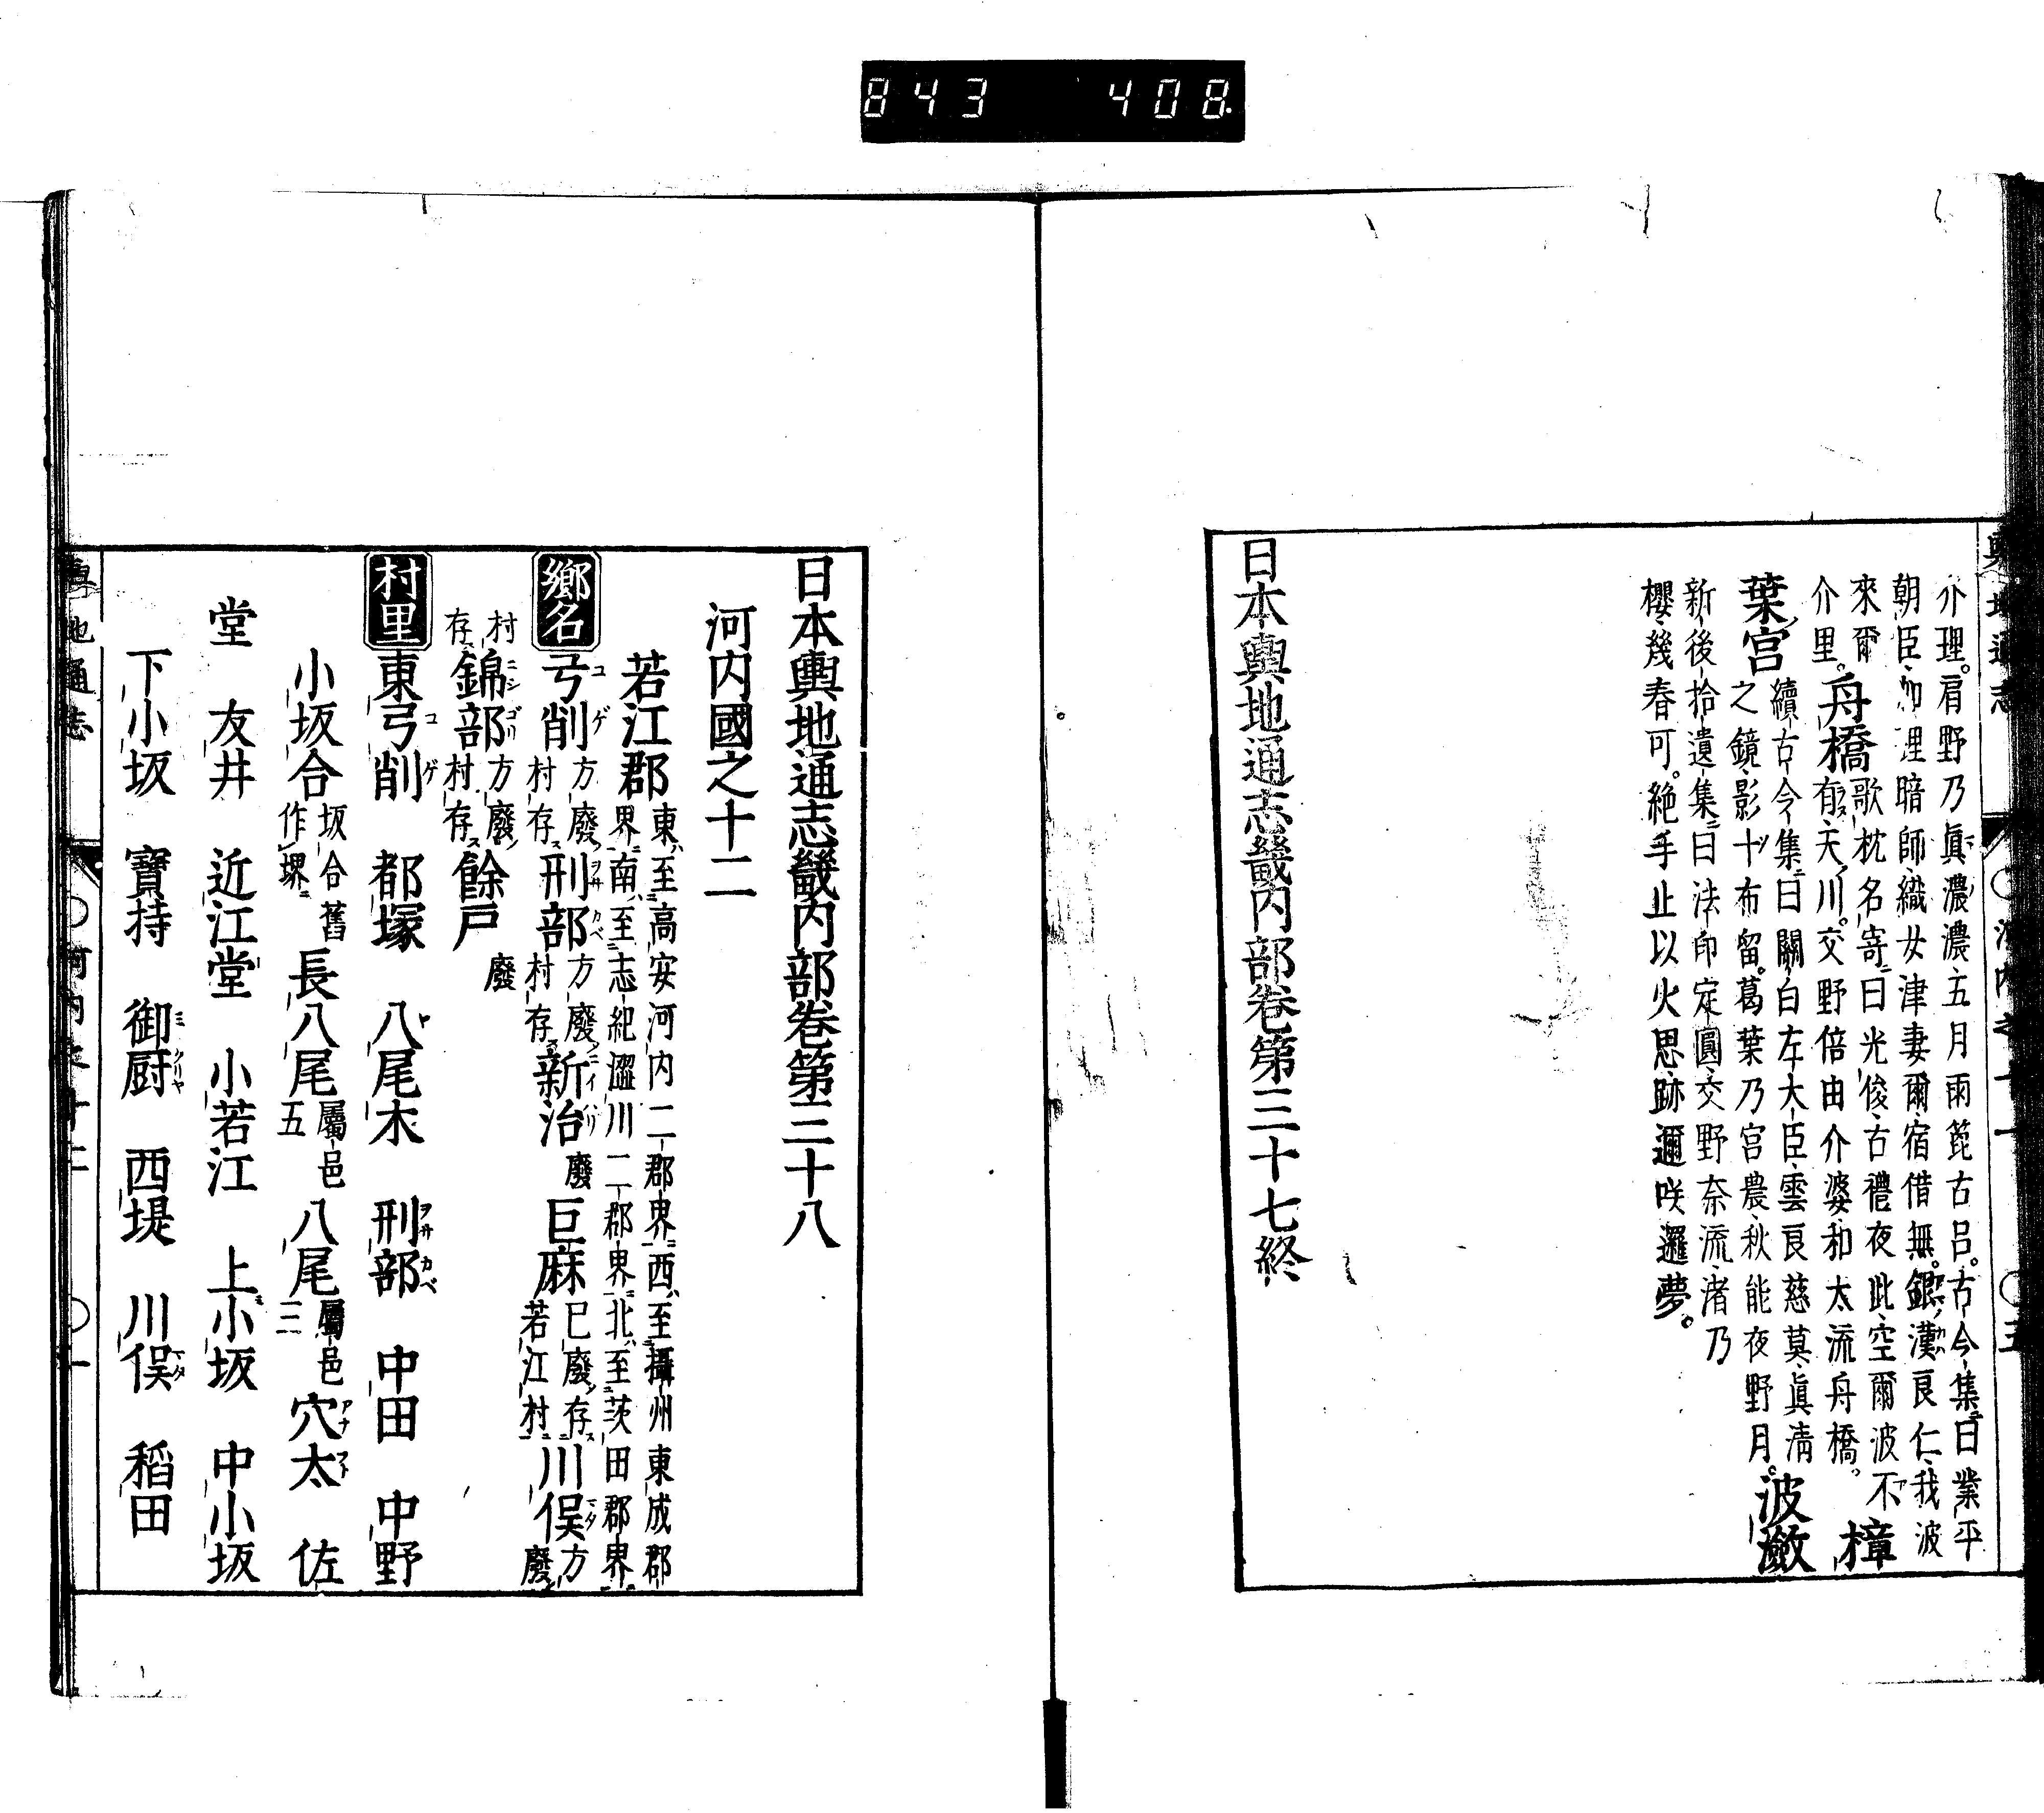 843 408
介理。肩野乃眞濃濃五月雨箆古呂。古今集曰業平
朝臣、加理暗師、織女津妻爾宿借無。銀漢良仁、我波
來爾 舟橋 歌枕名寄曰光俊、古禮夜此、空爾波不
介里。有天川。交野倍由介婆和太流舟橋。 樟
葉宮 續古今集曰關白左大臣、雲良慈莫眞清
之鏡影十布留。葛葉乃宮農秋能夜野月。 波瀲
新後拾遺集曰法印定圓、交野奈流、渚乃
櫻幾春可。絶手止以火思跡邇咲邏夢。
日本輿地通志畿内部卷第三十七終
日本輿地通志畿内部卷第三十八
河内國之十二
若江郡 東至高安河内二郡界西至攝州東成郡
界南至志紀澀川二郡界北至茨田郡界
鄉名 弓削 方廢村存 刑部 方廢村存 新治 廢 巨麻 已廢存若江村 川俣 方廢
村存 錦部 方廢村存 餘戸 廢
村里 東弓削 都塚 八尾木 刑部 中田 中野
小坂合 坂合舊作堺 長八尾 屬邑五 八尾 屬邑三 穴太 佐
堂 友井 近江堂 小若江 上小坂 中小坂
下小坂 寶持 御厨 西堤 川俣 稻田
輿地通志 河内之十二 一